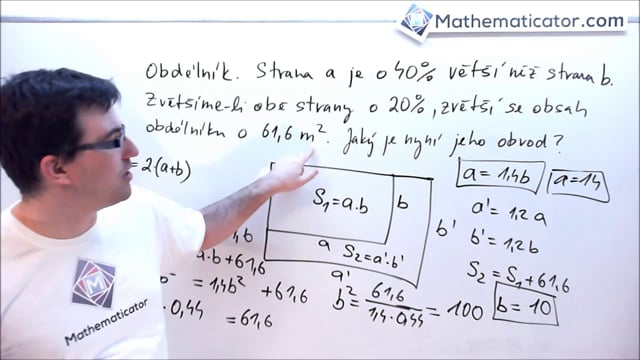 Mathematicator.com
Obdélník. Strana a je o 40% větší než strana b.
Zvětšíme-li obě strany o 20%, zvětší se obsah
obdélníku o 61,6 m². Jaký je nyní jeho obvod?
= 2·(a+b)
a = 1,4b
a = 14
S₁ = a·b
b
b'
a
S₂ = a'·b'
a'
a' = 1,2a
b' = 1,2b
S₂ = S₁ + 61,6
b = 10
a·b + 61,6
= 1,4b² + 61,6
· 0,44 = 61,6
b² = 61,6 / 1,4·0,44 = 100
Mathematicator